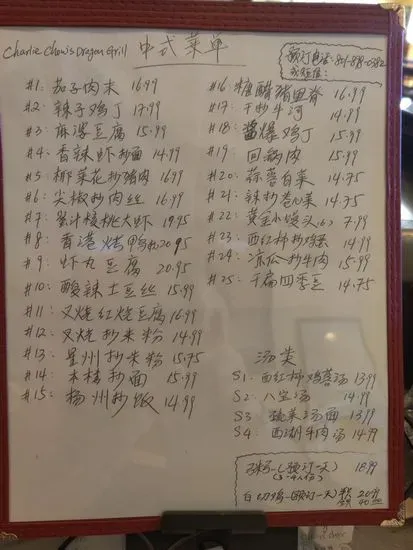 Charlie Chow's Dragon Grill 中式菜单
预订电话: 801-878-0382
或短信:
#1: 茄子肉末 16.99
#2: 辣子鸡丁 17.99
#3: 麻婆豆腐 15.99
#4: 香辣虾炒面 14.99
#5: 椰菜花炒猪肉 16.99
#6: 尖椒炒肉丝 16.99
#7: 蜜汁核桃大虾 19.95
#8 香港烤鸭 20.95
#9: 虾丸豆腐 20.95
#10: 酸辣土豆丝 15.99
#11: 叉烧红烧豆腐 16.99
#12: 叉烧炒米粉 14.99
#13: 星州炒米粉 15.75
#14: 本楼炒面 15.99
#15: 杨州炒饭 14.99
#16: 糖醋猪里脊 16.99
#17: 干炒牛河 14.99
#18: 酱爆鸡丁 15.99
#19: 回锅肉 15.99
#20: 蒜蓉白菜 14.75
#21: 辣炒卷心菜 14.75
#22: 黄金小馒头(6) 7.99
#23: 西红柿炒鸡蛋 14.99
#24: 凉瓜炒牛肉 15.99
#25: 干扁四季豆 14.75
汤类
S1: 西红柿鸡蛋汤 13.99
S2: 八宝汤 14.99
S3: 蔬菜汤面 13.99
S4: 西湖牛肉汤 14.99
粥-(预订一天) 18.99
(3-4人份)
白切鸡-(预订一天)